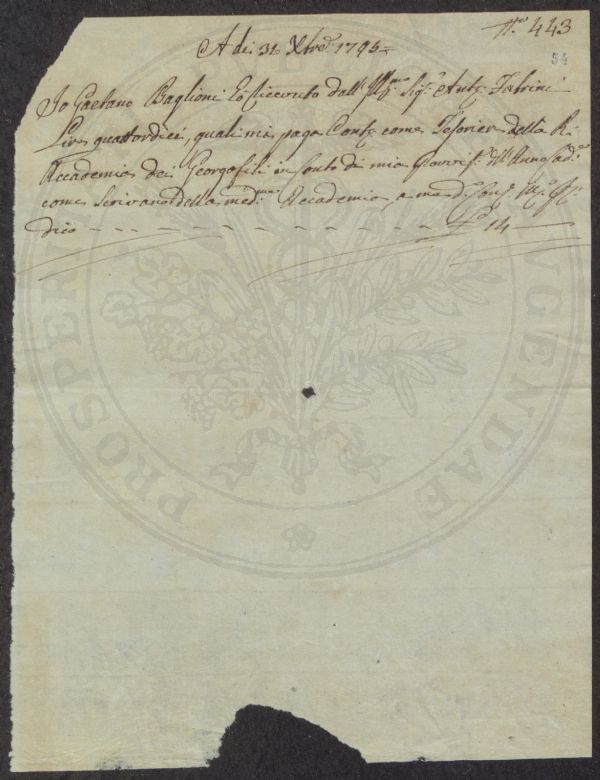 N.o 443
54
A dì 31 Xbre 1795
Io Gaetano Baglioni hò ricevuto dall' Ill.mo Sig.r Ant.o Fabrini
Lire quattordici, quali mi paga Cont. come Tesoriere della R.
Accademia dei Georgofili in conto di mia Provvis.e
come Scrivano della med.ma Accademia, a me d.o Cont.
dico - - - - - - - - - - - - £ 14
PROSPERI AUGENDAE